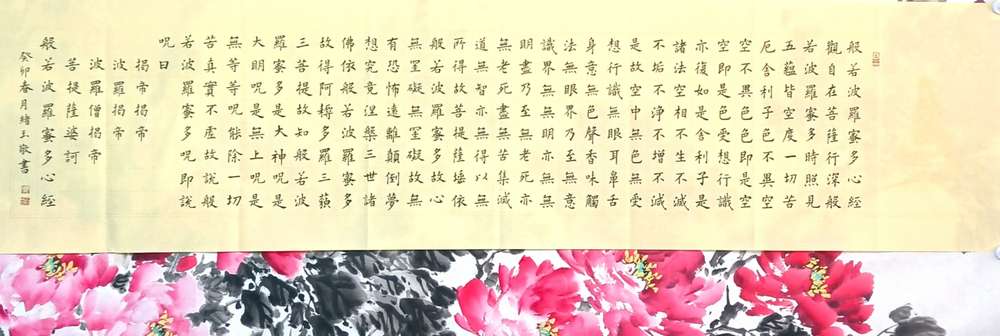 般若波羅蜜多心經
觀自在菩薩行深般
若波羅蜜多時照見
五蘊皆空度一切苦
厄舍利子色不異空
空不異色色即是空
空即是色受想行識
亦復如是舍利子是
諸法空相不生不滅
不垢不淨不增不減
是故空中無色無受
想行識無眼耳鼻舌
身意無色聲香味觸
法無眼界乃至無意
識界無無明亦無無
明盡乃至無老死亦
無老死盡無苦集滅
道無智亦無得以無
所得故菩提薩埵依
般若波羅蜜多故心
無罣礙無罣礙故無
有恐怖遠離顛倒夢
想究竟涅槃三世諸
佛依般若波羅蜜多
故得阿耨多羅三藐
三菩提故知般若波
羅蜜多是大神呪是
大明呪是無上呪是
無等等呪能除一切
苦真實不虛故說般
若波羅蜜多呪即說
呪曰
揭帝揭帝
波羅揭帝
波羅僧揭帝
菩提薩婆訶
般若波羅蜜多心經
癸卯春月緒玉敬書